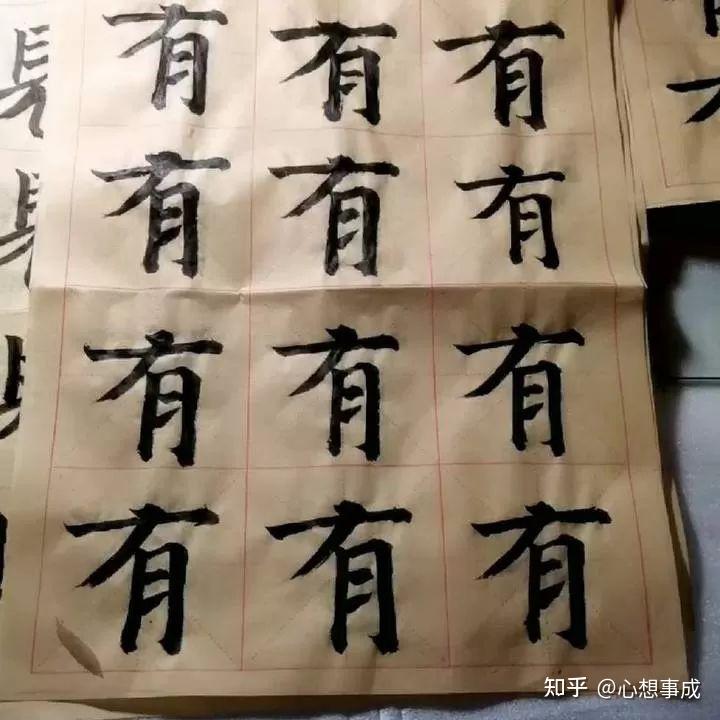 有 有 有
有 有 有
有 有 有
有 有 有
知乎 @心想事成